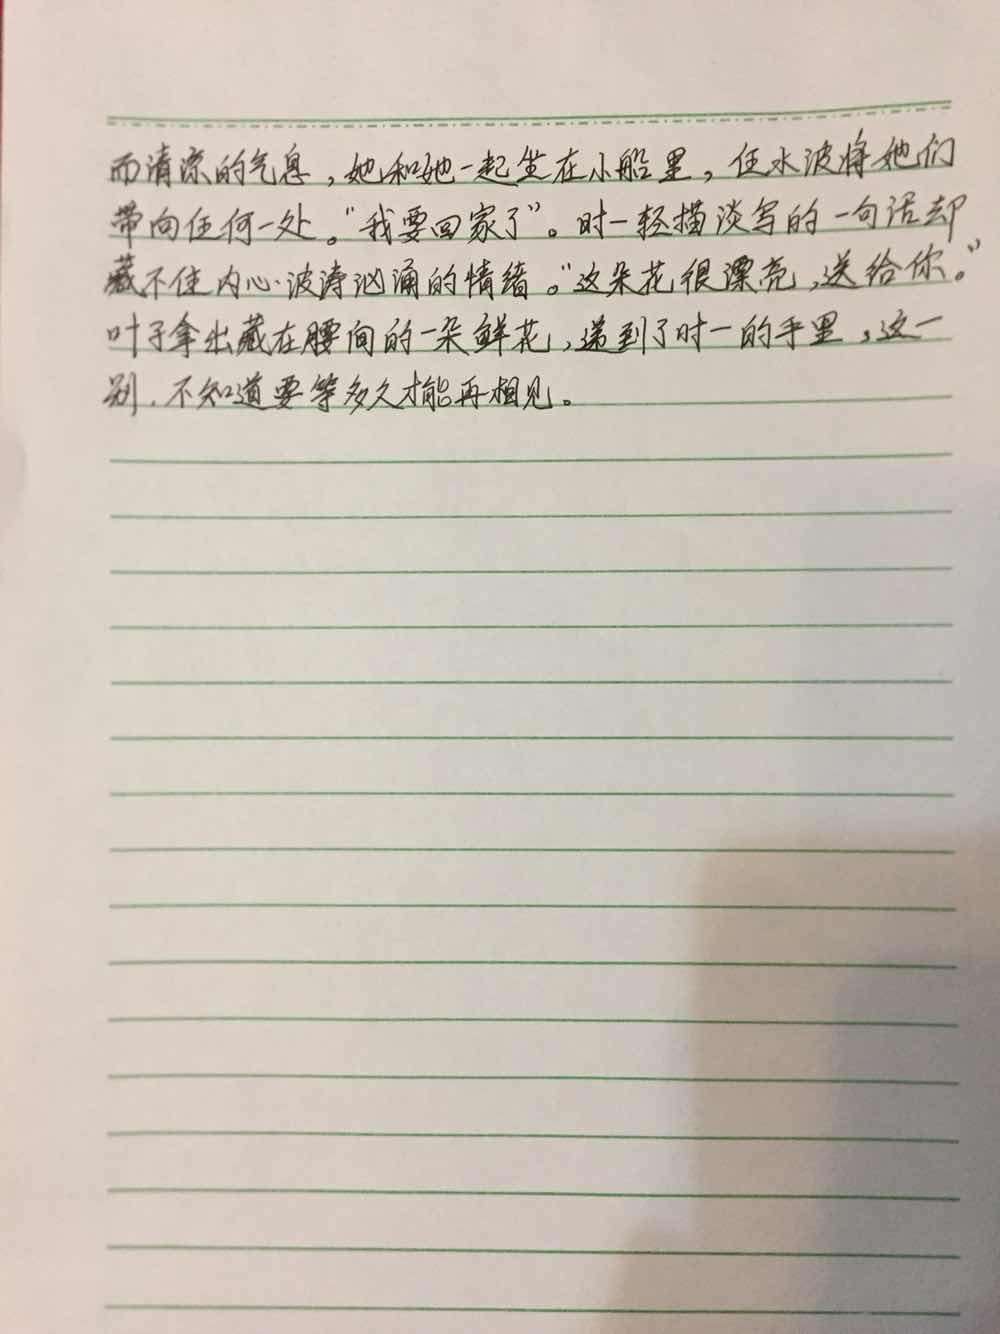 而清凉的气息，她和她一起坐在小船里，任水波将她们
带向任何一处。“我要回家了”。时一轻描淡写的一句话却
藏不住内心波涛汹涌的情绪。“这朵花很漂亮，送给你。”
叶子拿出藏在腰间的一朵鲜花，递到了时一的手里，这一
别，不知道要等多久才能再相见。